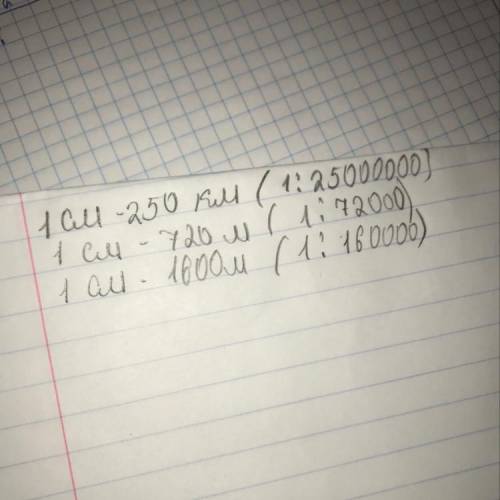 1 см - 250 км (1:25000000)
1 см - 720 м (1:72000)
1 см - 1600м (1:160000)